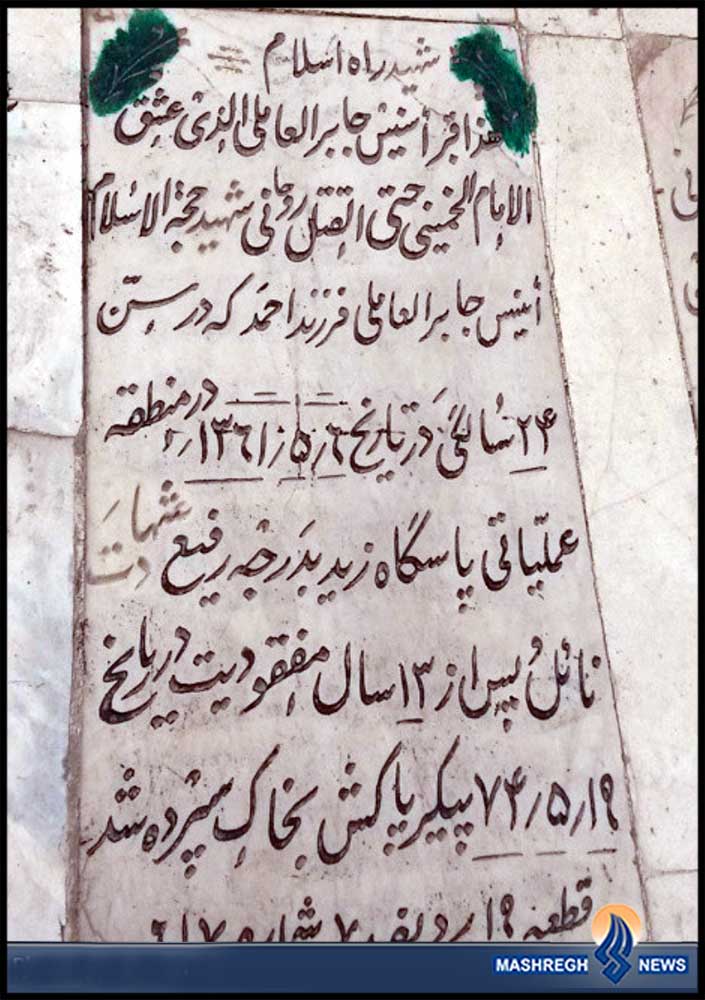 شهید راه اسلام
هذا قبر أنیس جابر العاملی الذی عشق
الإمام الخمینی حتی القتل روحانی شهید حجة الاسلام
أنیس جابر العاملی فرزند احمد که در سنّ
۲۴ سالگی در تاریخ ۱۳۶۱٫۵٫۶ در منطقه
عملیّاتی پاسگاه زید بدرجه رفیع شهادت
نائل و پس از ۱۳ سال مفقودیت در تاریخ
۷۴٫۵٫۱۹ پیکر پاکش بخاک سپرده شد
قطعه ردیف ۷ شماره
MASHREGH NEWS